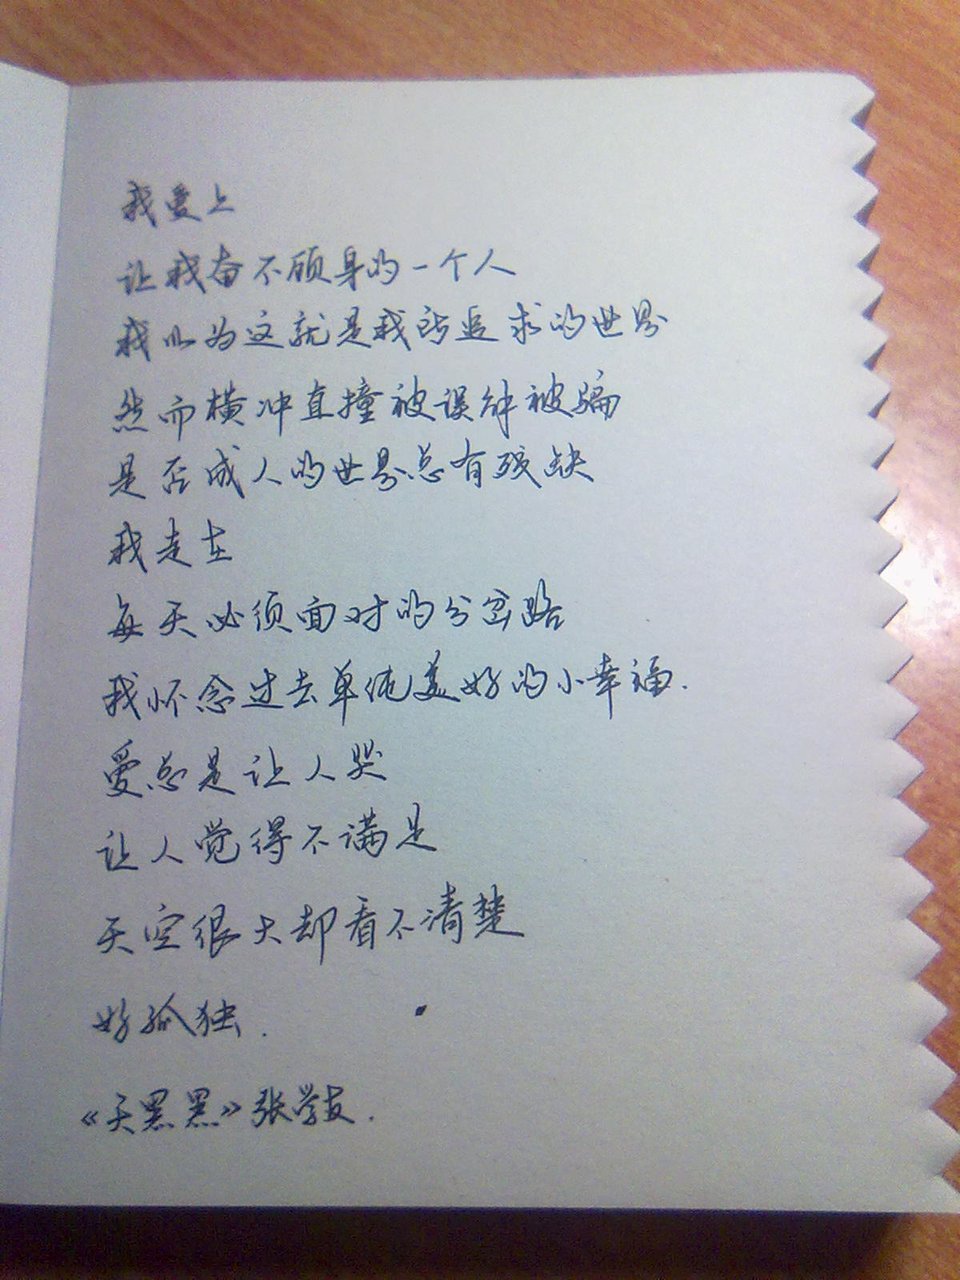 我爱上
让我奋不顾身的一个人
我以为这就是我所追求的世界
然而横冲直撞被误解被骗
是否成人的世界总有残缺
我走在
每天必须面对的分岔路
我怀念过去单纯美好的小幸福.
爱总是让人哭
让人觉得不满足
天空很大却看不清楚
好孤独.
《天黑黑》张学友.